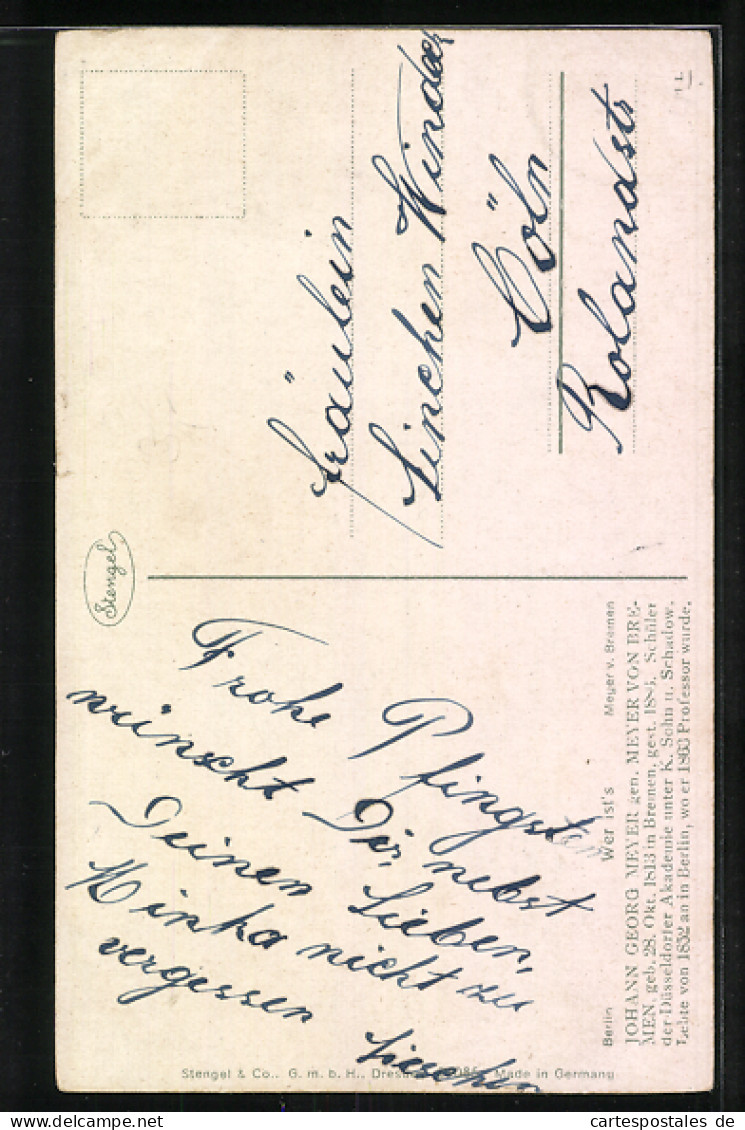 Berlin Wer ist's Meyer v. Bremen
JOHANN GEORG MEYER gen. MEYER VON BRE-
MEN, geb. 28. Okt. 1813 in Bremen, gest. 1886. Schüler
der Düsseldorfer Akademie unter K. Sohn u. Schadow.
Lebte von 1852 an in Berlin, wo er 1863 Professor wurde.
Frohe Pfingsten
wünscht Dir, nebst
Deinen Lieben,
Minka nicht zu
vergessen
Lieschen
Stengel & Co., G. m. b. H., Dresden Made in Germany
Stengel
Fräulein
Linchen Winder
Cöln
Rolandstr
cartespostales de